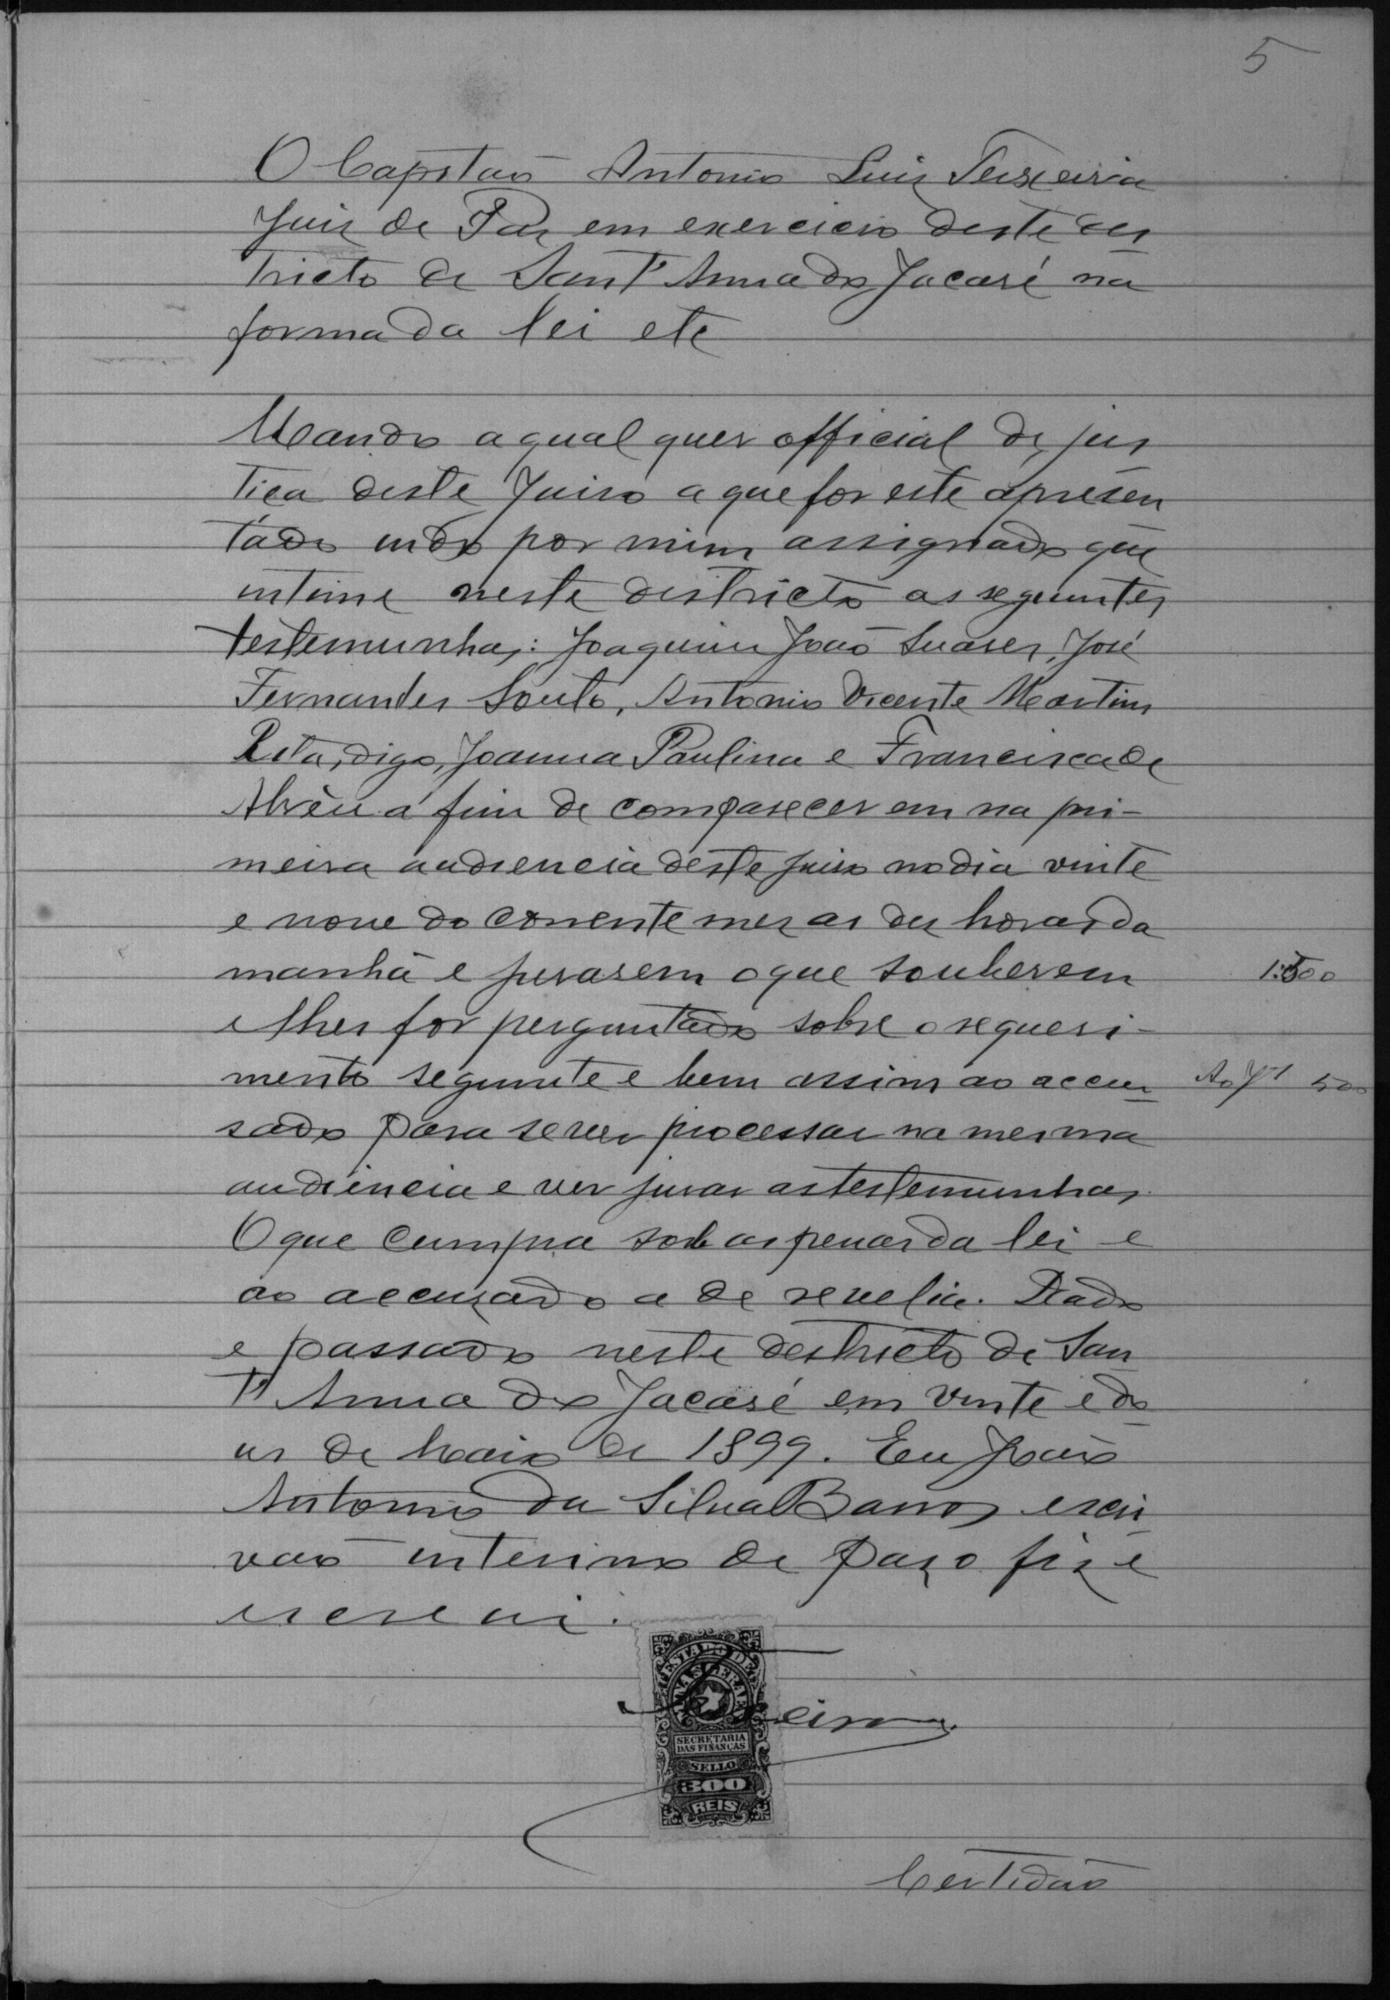 5
O Capitão Antonio Luiz Teixeira
Juiz de Paz em exercicio deste des
tricto de Sant'Anna do Jacaré na
forma da lei etc
Mando a qual quer official de jus
tiça deste Juiso a que for este apresen
tado indo por mim assignado que
intime neste destricto as seguintes
testemunhas: Joaquim João Suares, José
Fernandes Souto, Antonio Vicente Martins
Rita, digo, Joanna Paulina e Francisca de
Abrêu a fim de comparecerem na pri-
meira audiencia deste juiso no dia vinte
e nove do corrente mez as dez horas da
manhã e jurarem o que souberem
1:500
e lhes for perguntado sobre o requeri-
mento seguinte e bem assim ao accu
Ao Jz 500
sado para se ver processar na mesma
audiencia e ver jurar as testemunhas.
O que cumpra sob as penas da lei e
ao accuzado a de revelia. Dado
e passado neste destricto de San
t'Anna do Jacaré em vinte e do
us de Maio de 1899. Eu João
Antonio da Silva Barros escri
vão interino de paz o fiz e
escrevi.
ESTADO DE
MINAS GERAES
Teixeira
SECRETARIA
DAS FINANÇAS
SELLO
300
REIS
Certidão